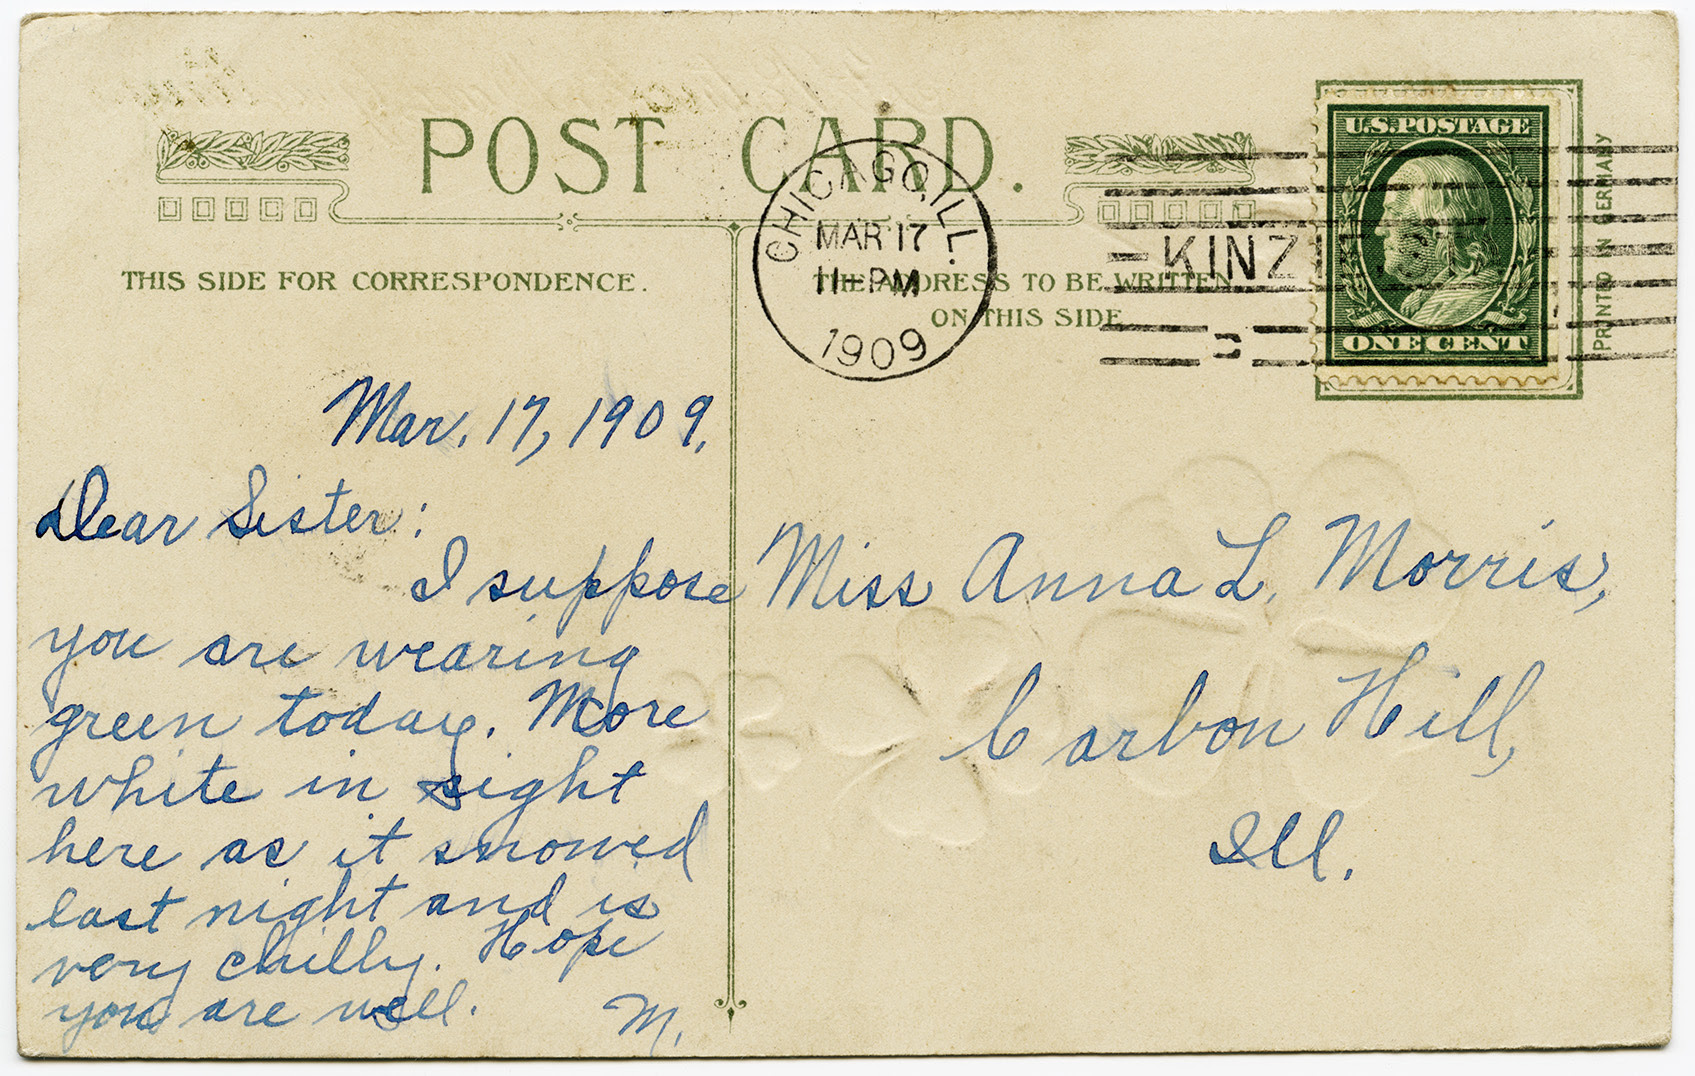 POST CARD.
THIS SIDE FOR CORRESPONDENCE.
THE ADDRESS TO BE WRITTEN
ON THIS SIDE
CHICAGO, ILL.
MAR 17
11-PM
1909
KINZIE
U.S. POSTAGE
ONE CENT
PRINTED IN GERMANY
Mar. 17, 1909.
Dear Sister:
I suppose
you are wearing
green today. More
white in sight
here as it snowed
last night and is
very chilly. Hope
you are well.
M.
Miss Anna L. Morris,
Carbon Hill,
Ill.